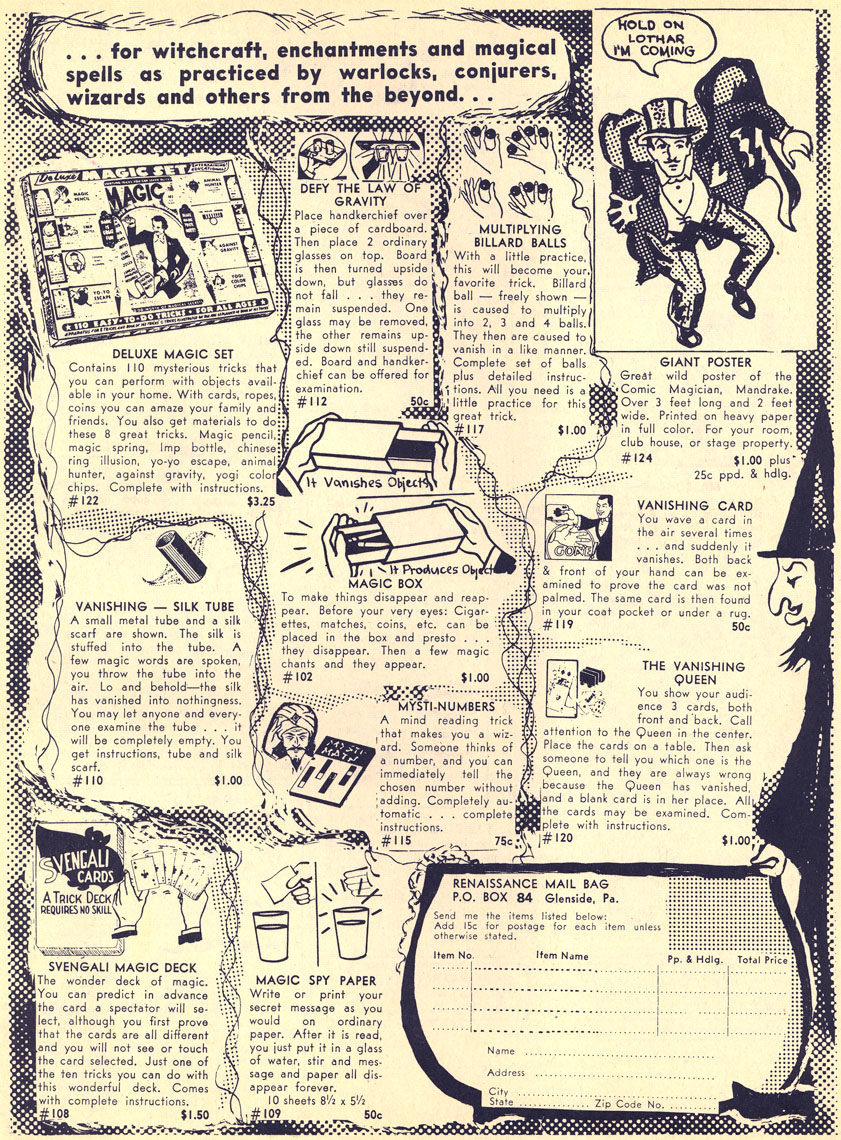 . . . for witchcraft, enchantments and magical
spells as practiced by warlocks, conjurers,
wizards and others from the beyond. . .
HOLD ON
LOTHAR
I'M COMING
DeLuxe MAGIC SET
MAGIC
MAGIC
PENCIL
IMP
BOTTLE
YO-YO
ESCAPE
ANIMAL
HUNTER
AGAINST
GRAVITY
YOGI
COLOR
★ 110 EASY-TO-DO TRICKS • FOR ALL AGES ★
DELUXE MAGIC SET
Contains 110 mysterious tricks that
you can perform with objects avail-
able in your home. With cards, ropes,
coins you can amaze your family and
friends. You also get materials to do
these 8 great tricks. Magic pencil,
magic spring, Imp bottle, chinese
ring illusion, yo-yo escape, animal
hunter, against gravity, yogi color
chips. Complete with instructions.
#122 $3.25
DEFY THE LAW OF
GRAVITY
Place handkerchief over
a piece of cardboard.
Then place 2 ordinary
glasses on top. Board
is then turned upside
down, but glasses do
not fall . . . they re-
main suspended. One
glass may be removed,
the other remains up-
side down still suspend-
ed. Board and handker-
chief can be offered for
examination.
#112 50c
MULTIPLYING
BILLARD BALLS
With a little practice,
this will become your
favorite trick. Billard
ball — freely shown —
is caused to multiply
into 2, 3 and 4 balls.
They then are caused to
vanish in a like manner.
Complete set of balls
plus detailed instruc-
tions. All you need is a
little practice for this
great trick.
#117 $1.00
GIANT POSTER
Great wild poster of the
Comic Magician, Mandrake.
Over 3 feet long and 2 feet
wide. Printed on heavy paper
in full color. For your room,
club house, or stage property.
#124 $1.00 plus
25c ppd. & hdlg.
It Vanishes Objects
It Produces Objects
MAGIC BOX
To make things disappear and reap-
pear. Before your very eyes: Cigar-
ettes, matches, coins, etc. can be
placed in the box and presto . . .
they disappear. Then a few magic
chants and they appear.
#102 $1.00
GONE
VANISHING CARD
You wave a card in
the air several times
. . . and suddenly it
vanishes. Both back
& front of your hand can be ex-
amined to prove the card was not
palmed. The same card is then found
in your coat pocket or under a rug.
#119 50c
VANISHING — SILK TUBE
A small metal tube and a silk
scarf are shown. The silk is
stuffed into the tube. A
few magic words are spoken,
you throw the tube into the
air. Lo and behold—the silk
has vanished into nothingness.
You may let anyone and every-
one examine the tube . . . it
will be completely empty. You
get instructions, tube and silk
scarf.
#110 $1.00
MYSTI-NUMBERS
A mind reading trick
that makes you a wiz-
ard. Someone thinks of
a number, and you can
immediately tell the
chosen number without
adding. Completely au-
tomatic . . . complete
instructions.
#115 75c
THE VANISHING
QUEEN
You show your audi-
ence 3 cards, both
front and back. Call
attention to the Queen in the center.
Place the cards on a table. Then ask
someone to tell you which one is the
Queen, and they are always wrong
because the Queen has vanished,
and a blank card is in her place. All
the cards may be examined. Com-
plete with instructions.
#120 $1.00
SVENGALI
CARDS
A TRICK DECK
REQUIRES NO SKILL
SVENGALI MAGIC DECK
The wonder deck of magic.
You can predict in advance
the card a spectator will se-
lect, although you first prove
that the cards are all different
and you will not see or touch
the card selected. Just one of
the ten tricks you can do with
this wonderful deck. Comes
with complete instructions.
#108 $1.50
MAGIC SPY PAPER
Write or print your
secret message as you
would on ordinary
paper. After it is read,
you just put it in a glass
of water, stir and mes-
sage and paper all dis-
appear forever.
10 sheets 8½ x 5½
#109 50c
RENAISSANCE MAIL BAG
P.O. BOX 84 Glenside, Pa.
Send me the items listed below:
Add 15c for postage for each item unless
otherwise stated.
Item No. Item Name Pp. & Hdlg. Total Price
Name
Address
City
State Zip Code No.